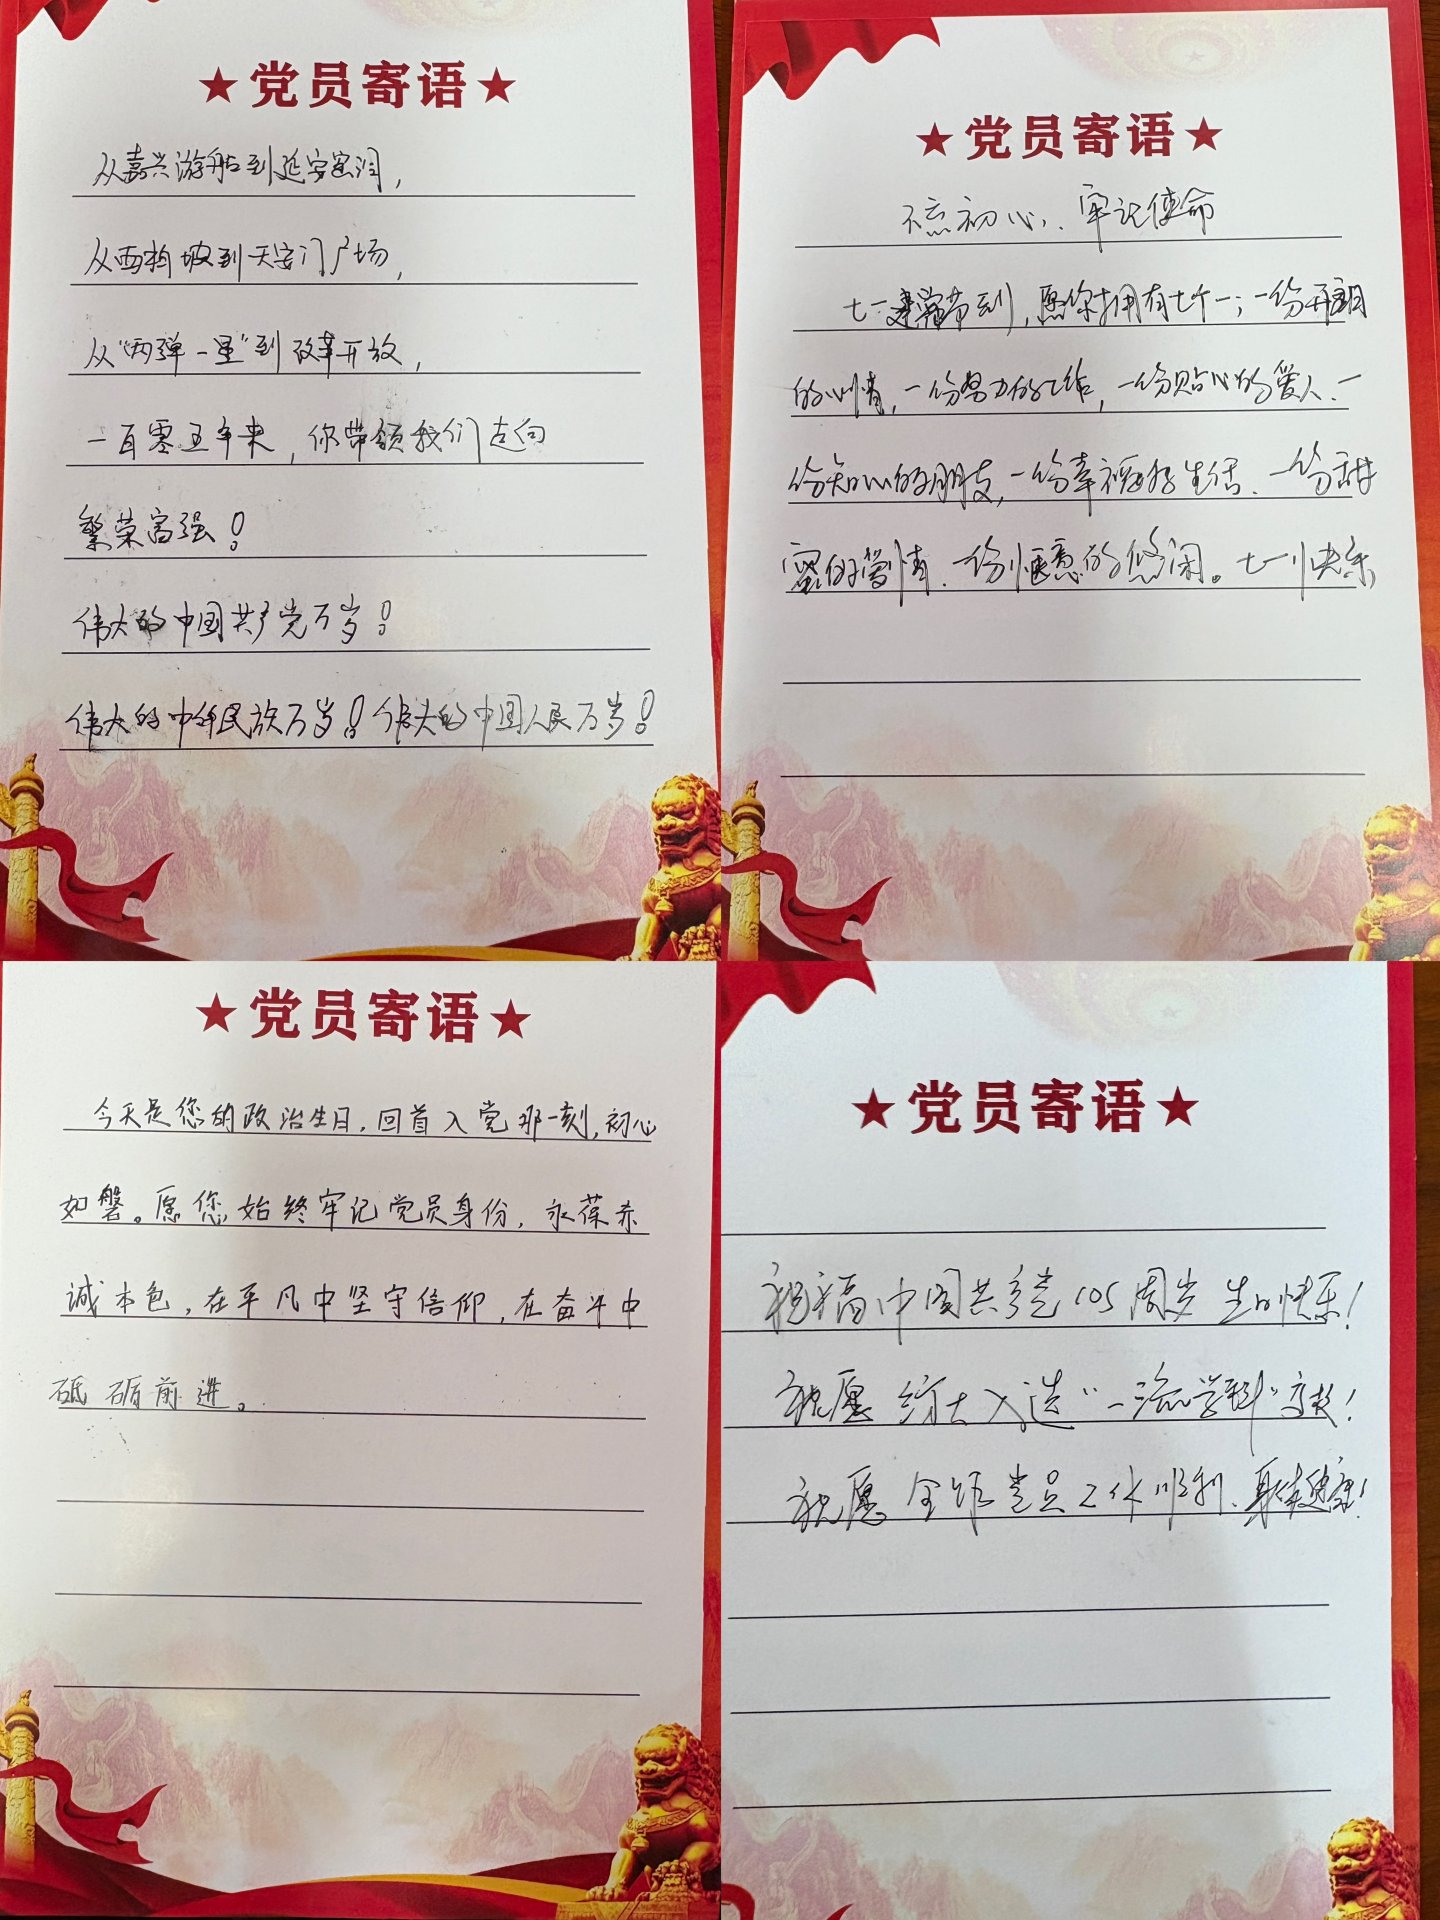 ★党员寄语★
从嘉兴游船到延安窑洞,
从西柏坡到天安门广场,
从“两弹一星”到改革开放,
一百零五年来,你带领我们走向
繁荣富强!
伟大的中国共产党万岁!
伟大的中华民族万岁!伟大的中国人民万岁!
★党员寄语★
不忘初心、牢记使命
七一建党节到,愿你拥有七个一;一份开朗
的心情,一份努力的工作,一份贴心的爱人、一
份知心的朋友,一份幸福的生活、一份甜
蜜的爱情、一份惬意的悠闲。七一快乐
★党员寄语★
今天是您的政治生日,回首入党那一刻,初心
如磐。愿您始终牢记党员身份,永葆赤
诚本色,在平凡中坚守信仰,在奋斗中
砥砺前进。
★党员寄语★
祝福中国共产党105周岁生日快乐!
祝愿 大入选“一流学科”高校!
祝愿全体党员工作顺利、身体健康!